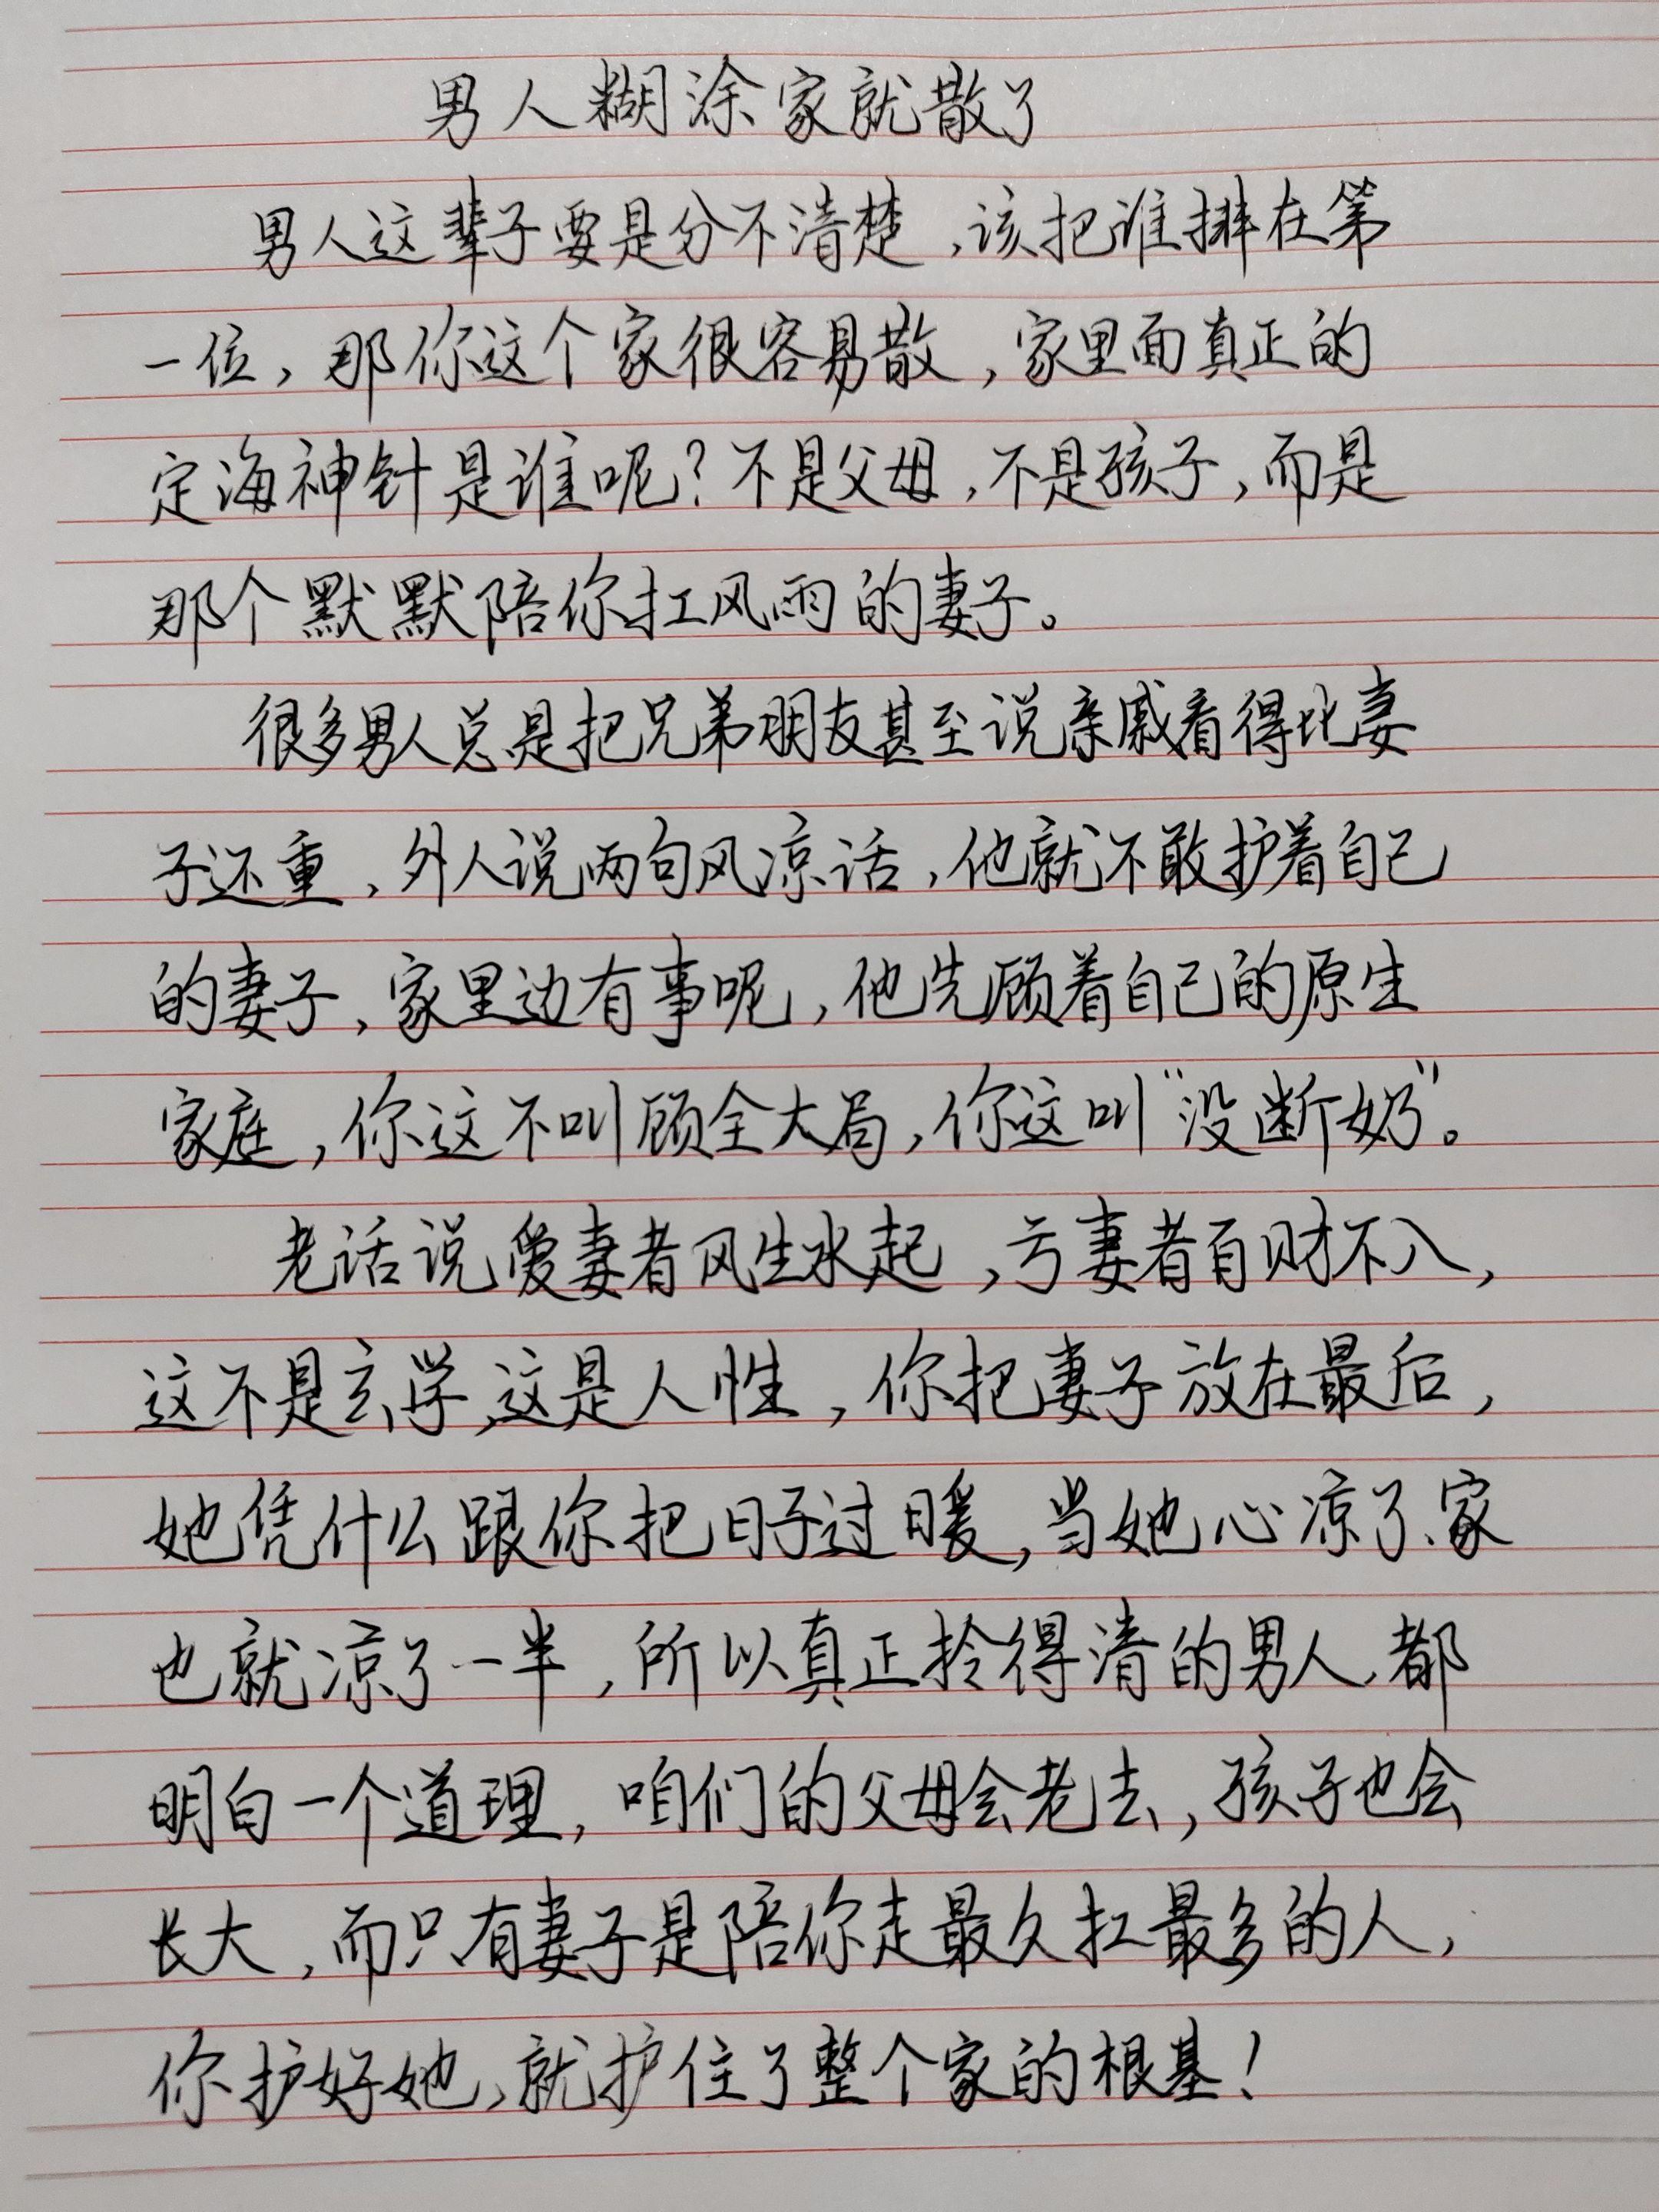 男人糊涂家就散了
男人这辈子要是分不清楚,该把谁排在第
一位,那你这个家很容易散,家里面真正的
定海神针是谁呢?不是父母,不是孩子,而是
那个默默陪你扛风雨的妻子。
很多男人总是把兄弟朋友甚至说亲戚看得比妻
子还重,外人说两句风凉话,他就不敢护着自己
的妻子,家里边有事呢,他先顾着自己的原生
家庭,你这不叫顾全大局,你这叫“没断奶”。
老话说,爱妻者风生水起,亏妻者百财不入,
这不是玄学,这是人性,你把妻子放在最后,
她凭什么跟你把日子过暖,当她心凉了,家
也就凉了一半,所以真正拎得清的男人,都
明白一个道理,咱们的父母会老去,孩子也会
长大,而只有妻子是陪你走最久扛最多的人,
你护好她,就护住了整个家的根基!